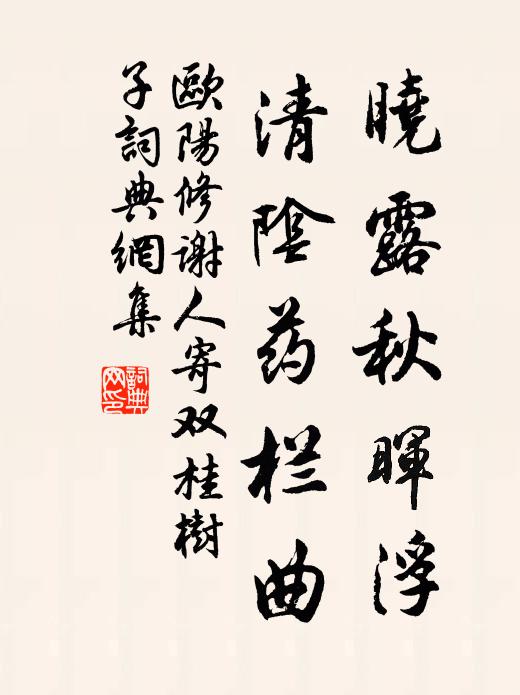 曉露秋暉浮
清陰药栏曲
歐陽修谢人寄双桂樹
子詞典網集
詞典网印